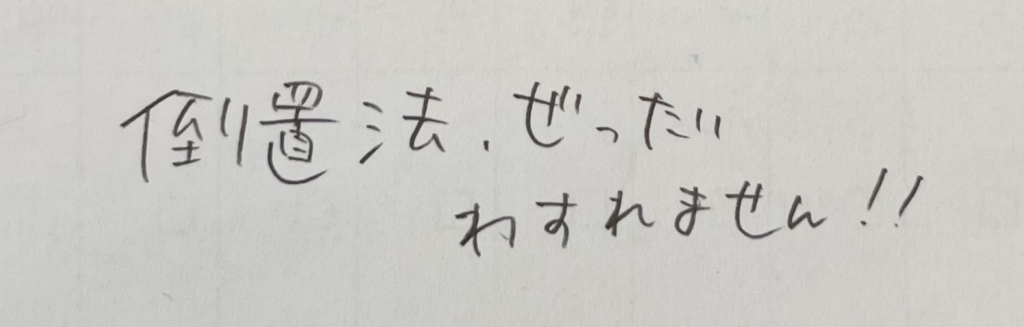 倒置法、ぜったい
わすれません!!